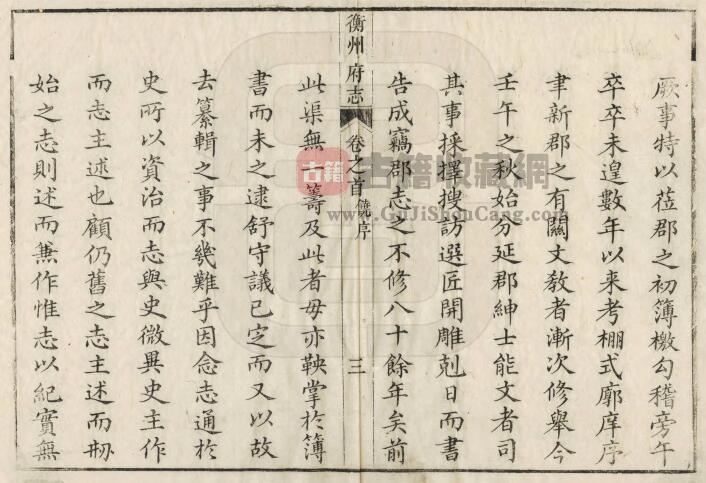 厥事特以莅郡之初簿檄勾稽旁午
卒卒未遑數年以來考棚式廓庠序
聿新郡之有關文敎者漸次修舉今
壬午之秋始分延郡紳士能文者司
其事採擇搜訪選匠開雕剋日而書
告成竊郡志之不修八十餘年矣前
衡州府志
卷之首
饒序
三
此渠無一籌及此者毋亦鞅掌於簿
書而未之逮舒守議已定而又以故
去纂輯之事不幾難乎因念志通於
史所以資治而志與史微異史主作
而志主述也顧仍舊之志主述而刱
始之志則述而兼作惟志以紀實無
古籍
古籍收藏網
www.GuJiShouCang.com